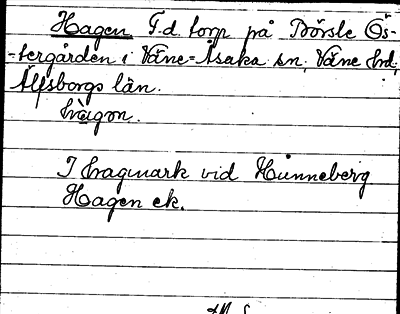 Hagen F.d. torp på Börsle Ös-
-tergården i Väne-Åsaka sn, Väne hd,
Älfsborgs län.
hàgon.
I hagmark vid Hunneberg
Hagen ek.